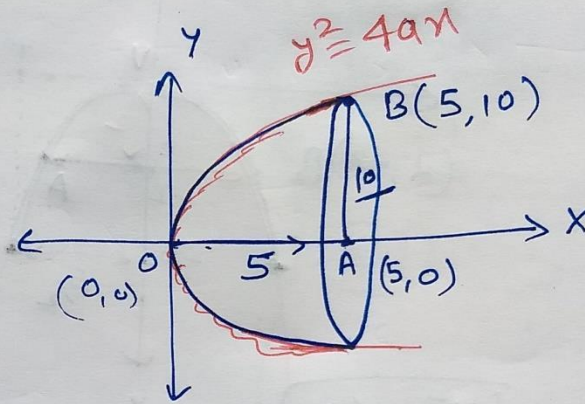 Y
y² = 4ax
B(5,10)
10
X
O
5
A
(5,0)
(0,0)